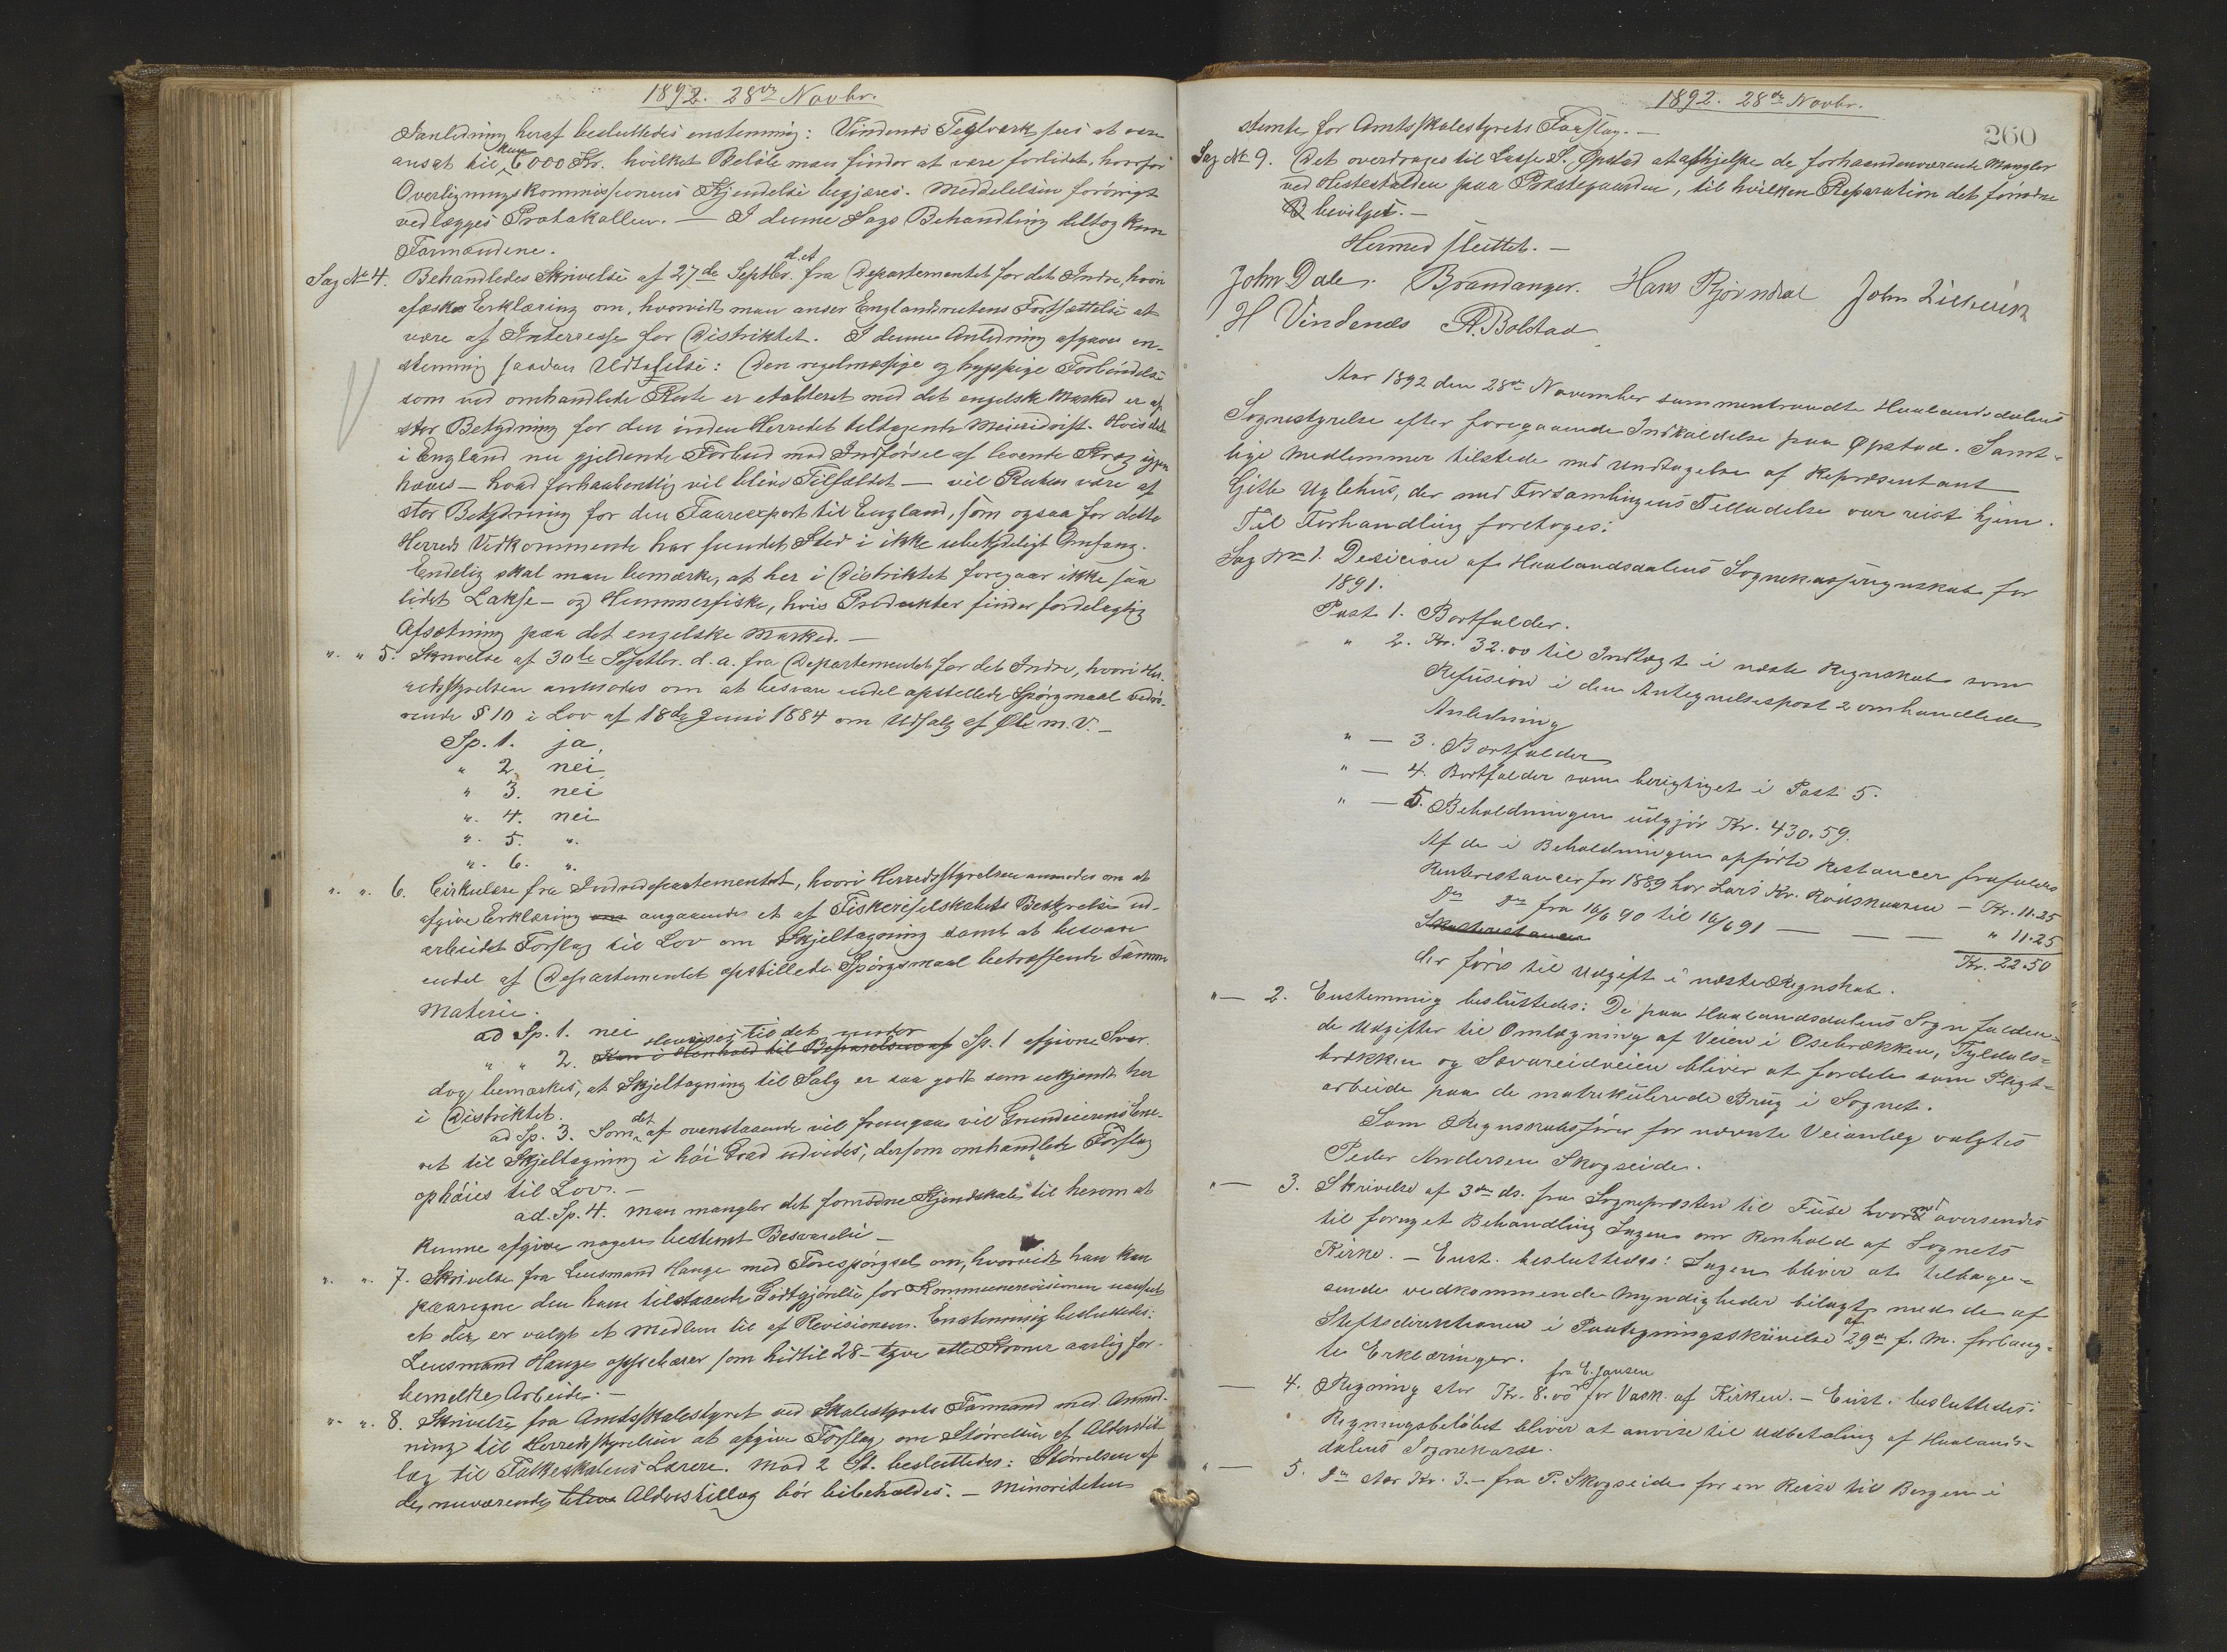 1892. 28de Novbr.
Ianledning heraf besluttedes enstemmig: Vindenes Teglværk sees at være
ansat til kun 6000 Kr. hvilket Beløb man finder at være forlidet, hvorfor
Overligningskommissionens Kjendelse begjæres. Meddelelsen forøvrigt
vedlægges Protokollen. — I denne Sags Behandling deltog kun
Formændene.
Sag No 4. Behandledes Skrivelse af 27de Septbr. d.A. fra Departementet for det Indre, hvori
afæskes Erklæring om, hvorvidt man anser Englandsrutens Fortsættelse at
være af Interresse for Distriktet. I denne Anledning afgaves en-
stemmig saadan Udtalelse: Den regelmæssige og hyppige Forbindelse
som ved omhandlede Rute er etableret med det engelske Marked er af
stor Betydning for den inden Herredet tiltagende Meieridrift. Hvis det
i England nu gjeldende Forbud mod Indførsel af levende Kræg igjen
hæves — hvad forhaabentlig vil blive Tilfældet — vil Ruten være af
stor Betydning for den Faareexport til England, som ogsaa for dette
Herreds Vedkommende har fundet Sted i ikke ubetydeligt Omfang.
Endelig skal man bemærke, at her i Distriktet foregaar ikke saa
lidet Lakse- og Hummerfiske, hvis Produkter finder fordelagtig
Afsætning paa det engelske Marked. —
" " 5. Skrivelse af 30te Septbr. d.a. fra Departementet for det Indre, hvori Her-
redsstyrelsen anmodes om at besvare endel opstillede Spørgsmaal vedrø-
rende § 10 i Lov af 18de Juni 1884 om Udsalg af Øl m.V. —
Sp. 1. ja
" 2. nei
" 3. nei
" 4. nei
" 5. "
" 6. "
" " 6. Cirkulære fra Indredepartementet, hvori Herredsstyrelsen anmodes om at
afgive Erklæring om angaaende et af Fiskeriselskabets Bestyrelse ud-
arbeidet Forslag til Lov om Skjeltagning samt at besvare
endel af Departementet opstillede Spørgsmaal betræffende samme
Materie.
ad Sp. 1. nei
henvises til det under
" " 2. Kan i Henhold til Besvarelsen af Sp. 1 afgivne Svar.
dog bemærkes, at Skjeltagning til Salg er saa godt som ukjendt her
i Distriktet.
ad Sp. 3. Som det af ovenstaaende vil fremgaa vil Grundeierens Ene-
ret til Skjeltagning i høi Grad udvides, dersom omhandlede Forslag
ophøies til Lov. —
ad. Sp. 4. Man mangler det fornødne Kjendskab til herom at
kunne afgive nogen bestemt Besvarelse —
" " 7. Skrivelse fra Lensmand Hauge med Forespørgsel om, hvorvidt han kan
paaregne den ham tilstaaede Godtgjørelse for Kommunerevisionen uanset
at der er valgt et Medlem til af Revisionen. Enstemmig besluttedes:
Lensmand Hauge oppebærer som hidtil 28 – tyve otte Kroner aarlig for
bemeldte Arbeide. —
" " 8. Skrivelse fra Amtsskolestyret ved Skolestyrets Formand med Anmod-
ning til Herredsstyrelsen at afgive Forslag om Størrelsen af Alderstil-
læg til Folkeskolens Lærere. Mod 2 St. besluttedes: Størrelsen af
de nuværende Alderstillæg bør bibeholdes. — Minoriteten
1892. 28de Novbr.
260
stemte for Amtsskolestyrets Forslag. —
Sag No 9. Det overdrages til Lasse L. Opstad at afhjelpe de forhaandenværende Mangler
ved Hestestalden paa Præstegaarden, til hvilken Reparation det fornødne
bevilges. —
Hermed sluttet. —
John Dale. Brandanger. Hans Bjørndal John
H Vindenes A. Bolstad
Aar 1892 den 28de November sammentraadte Haalandsdalens
Sognestyrelse efter foregaaende Indkaldelse paa Opstad. Samt-
lige Medlemmer tilstede med Undtagelse af Repræsentant
Gitle Uglehus, der med Forsamlingens Tilladelse var reist hjem.
Til Forhandling foretoges:
Sag No 1. Desicion af Haalandsdalens Sognekasseregnskab for
1891.
Post 1. Bortfalder.
" 2. Kr. 32.00 til Indtægt i næste Regnskab som
Refusion i den Antegnelsespost 2 omhandlede
Anledning
" — 3. Bortfalder
" — 4. Bortfalder som berigtiget i Post 5.
" — 5. Beholdningen udgjør Kr. 430.59.
Af de i Beholdningen opførte Restancer frafaldes
Renterestancer for 1889 hos Lars Kr. Röiskvaren – Kr. 11.25
Do do fra 16/6 90 til 16/6 91 — — — " 11.25
Skatterestancer Kr. 22.50
der føres til Udgift i næste Regnskab.
" — 2. Enstemmig besluttedes: De paa Haalandsdalens Sogn falden-
de Udgifter til Omlægning af Veien i Osebrækken, Tyldals-
brækken og Sævareidveien bliver at fordele som Pligt-
arbeide paa de matrikulerede Brug i Sognet.
Som Regnskabsfører for nævnte Veianlæg valgtes
Peder Andersen Skogseide.
" — 3. Skrivelse af 3die ds. fra Sognepræsten til Fuse hvormed oversendes
til fornyet Behandling Sagen om Renhold af Sognets
Kirke. — Enst. besluttedes: Sagen bliver at tilbage-
sende vedkommende Myndigheder bilagt med de af
Stiftsdirektionen i Paategningsskrivelse af 29de f. M. forlang-
te Erklæringer.
— 4. Regning stor Kr. 8.00 fra E. Jansen for Vask af Kirken. — Enst. besluttedes:
Regningsbeløbet bliver at anvise til Udbetaling af Haalands-
dalens Sognekasse.
" — 5. Do stor Kr. 3.– fra P. Skogseide for en Reise til Bergen i